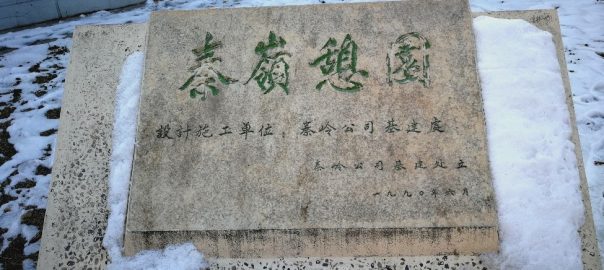 秦嶺憩園
設計施工单位：秦岭公司基建処
秦岭公司基建处立
一九九〇年六月